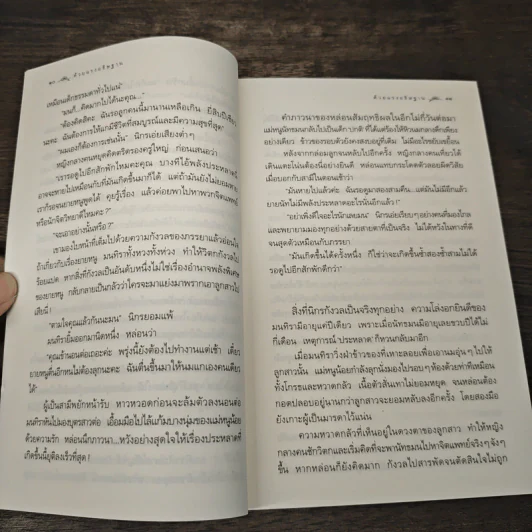 ๑๐ ด้วยแรงอธิษฐาน
เหมือนเด็กธรรมดาทั่วไปแน่"
"มนก็...คิดมากไปได้นะคุณ..."
"ต้องคิดสิคะ ฉันรอลูกคนนี้มานานเหลือเกิน
นะคะ ฉันต้องการให้แกมีชีวิตที่สมบูรณ์และมีความสุขที่สุด"
"ผมเองก็ต้องการเช่นนั้น" นิกรเอ่ยเสียงต่ำๆ
หญิงกลางคนหยุดคิดตรึกตรองครู่ใหญ่ ก่อนเสนอว่า
"เรารอดูไปอีกสักพักไหมคะคุณ บางทีไอ้พลังประหลาดนี่
อาจจะหายไปเหมือนกับที่มันเกิดขึ้นมาก็ได้ แต่ถ้ามันยังไม่ยอมหาย
เราก็รอจนยายหนูพูดได้ คุยรู้เรื่อง แล้วค่อยพาไปหาพวกจิตแพทย์
หรือนักจิตวิทยาดีไหมคะ ?"
"จะเอาอย่างนั้นหรือ ?"
เขามองใบหน้าที่เต็มไปด้วยความกังวลของภรรยาแล้วอ่อนใจ
ถ้าเกี่ยวกับเรื่องยายหนู มนทิราทั้งหวงทั้งห่วง ทำให้วิตกกังวลไป
ร้อยแปด หากสิ่งที่กังวลเป็นอันดับหนึ่งไม่ใช่เรื่องอำนาจพลังพิเศษ
ของยายหนู กลับกลายเป็นกลัวว่าใครจะมาแย่งมาพรากเอาลูกสาวไป
เสียนี่ !
"ตามใจคุณแล้วกันนะมน" นิกรยอมแพ้
มนทิรายิ้มออกมานิดหนึ่ง หล่อนว่า
"คุณเข้านอนต่อเถอะค่ะ พรุ่งนี้ยังต้องไปทำงานแต่เช้า เดี๋ยว
ยายหนูตื่นอีกทนไม่ต้องลุกนะคะ ฉันตื่นขึ้นมาให้นมแกเองคนเดียว
ได้"
ผู้เป็นสามีพยักหน้ารับ หาวหวอดก่อนจะล้มตัวลงนอน
มนทิราหันไปมองบุตรสาวต่อ เอื้อมมือไปไล้แก้มบางนุ่มของแม่หนูน้อย
ด้วยความรัก หล่อนนึกภาวนา...หวังอย่างสุดใจให้เรื่องประหลาดที่
เกิดขึ้นนี้ยุติลงเร็วที่สุด !
ด้วยแรงอธิษฐาน ๑๑
คำภาวนาของหล่อนสัมฤทธิผลในอีกไม่กี่วันต่อมา
แม่หนูนัทธมนกลับไปเป็นเด็กปกติ ที่ได้แต่ร้องไห้หิวนมกลางดึกเพียง
อย่างเดียว ข้าวของรอบตัวยังคงสงบอยู่ที่เดิม ไม่มีอะไรขยับเขยื้อน
หลังจากกล่อมลูกจนหลับไปอีกครั้ง หญิงกลางคนเดียวได้
เดินแตะโน่นต้องนี่อย่างยินดี ก่อนกระโดดกอดคอสามีแล้วลดเสียง
เอ่ยเบาๆ ว่า
"มันหายไปแล้วค่ะ ฉันรอดูมาสองสามคืน...แต่มันไม่มีอีกแล้ว
ยายนัทไม่มีพลังประหลาดอะไรนั่นอีกแล้ว !"
"อย่าเพิ่งดีใจอะไรนักเลยมน" นิกรเอ่ยเรียบๆ อย่างคนที่มองไกล
และพยายามมองทุกอย่างด้วยสายตาที่เป็นจริง ไม่ได้หวังในทางที่ดี
จนสุดตัวเหมือนกับภรรยา
"มันเกิดขึ้นได้ครั้งหนึ่ง ก็ใช่ว่าจะเกิดขึ้นซ้ำสองซ้ำสามไม่ได้
รอดูไปอีกสักพักดีกว่า"
สิ่งที่นิกรกังวลเป็นจริงทุกอย่าง ความโล่งอกยินดีของ
มนทิรามีอายุแค่ปีเดียว เพราะเมื่อนัทธมนมีอายุเลยขวบปีได้ไม่
กี่เดือน เหตุการณ์ 'ประหลาด' ก็หวนกลับมาอีก
เมื่อมนทิราวิ่งฝ่าข้าวของที่เหาะลอยเพื่อเอานมอุ่นๆ ไปให้
ลูกสาวนั้น แม่หนูน้อยกำลังลุกนั่งมองไปรอบๆ ห้องด้วยท่าทีเหมือน
ทั้งโกรธและหวาดกลัว เนื้อตัวสั่นเทาไม่ยอมหยุด จนหล่อนต้อง
กอดปลอบอยู่นานกว่าลูกสาวจะยอมหลับลงอีกครั้ง โดยสองมือ
ยังเกาะผู้เป็นมารดาไว้แน่น
ความหวาดกลัวที่เห็นอยู่ในดวงตาของลูกสาว ทำให้หญิง
กลางคนชักวิตกและเริ่มคิดที่จะพานัทธมนไปหาจิตแพทย์จริงๆ จังๆ
ขึ้น หากหล่อนก็ยังคิดมาก กังวลไปสารพัดจนตัดสินใจไม่ถูก